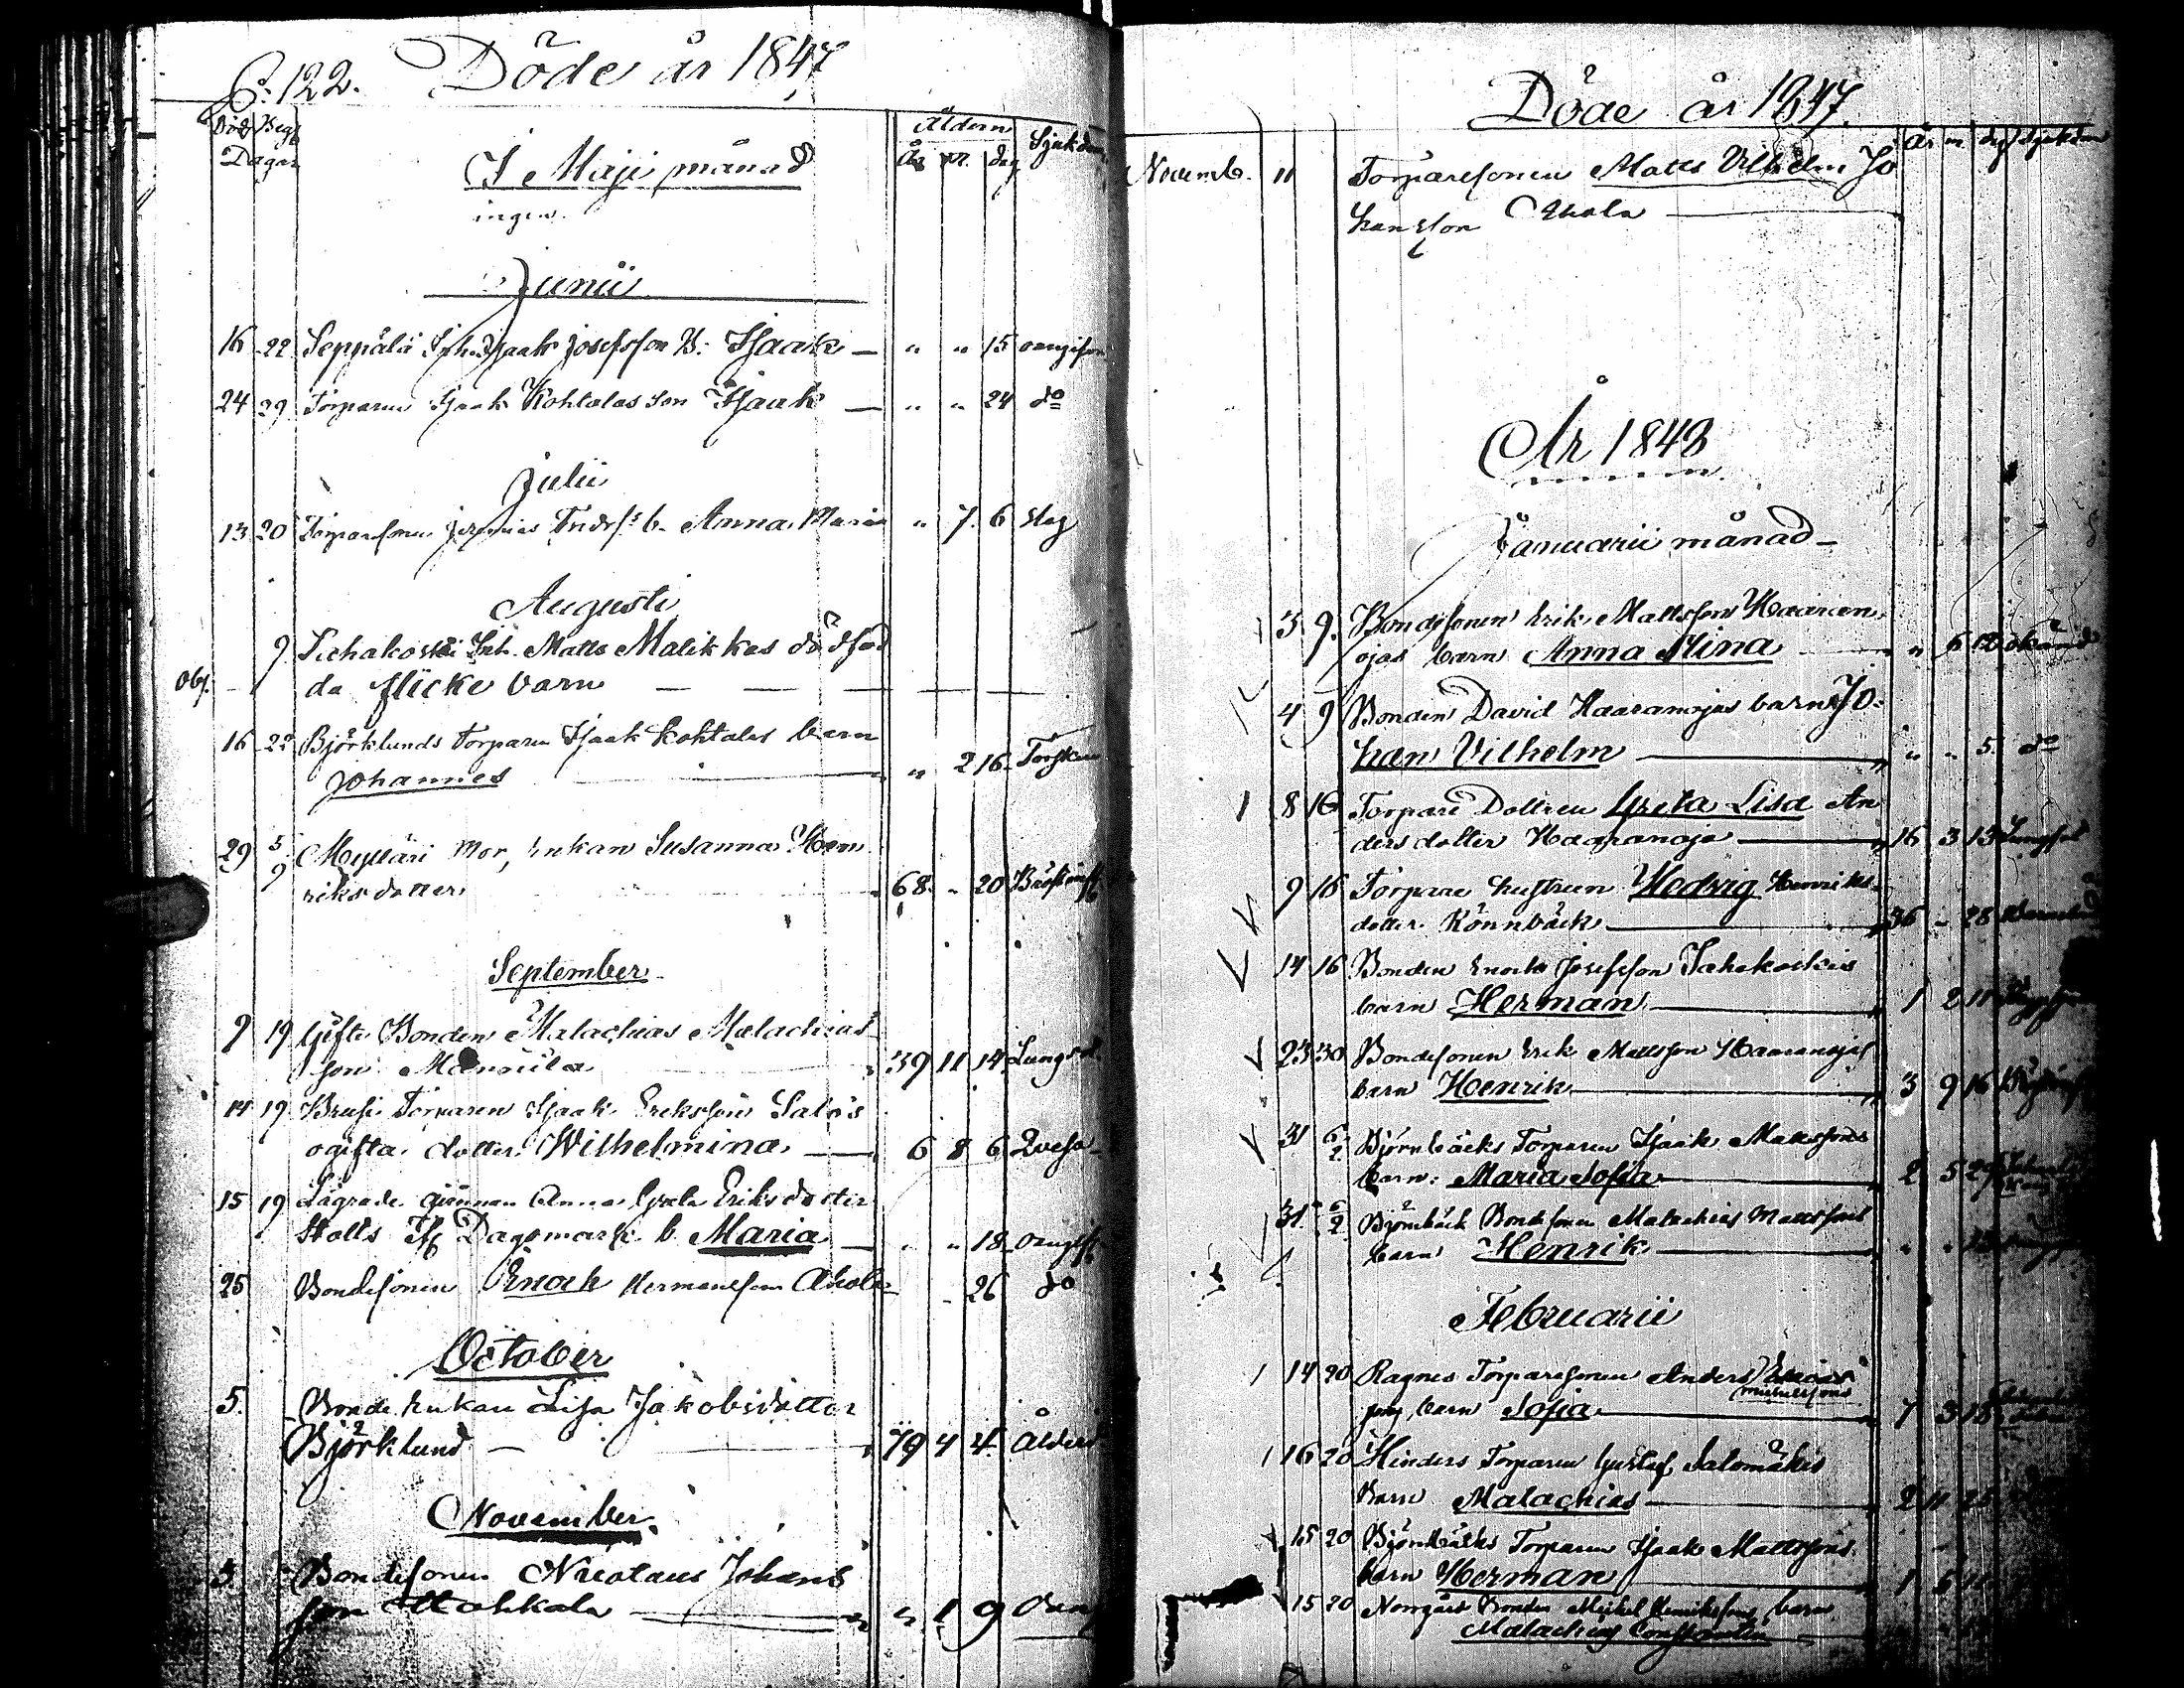 122. Döde år 1847
Död Begr
Dagar
Åldern
År m. dag Sjukdom
I Maji månad
ingen.
Junii
16 22 Seppälä Inh. Isaak Josefsson b: Isaak — " " 15 oangifven
24 29 Torparen Isaak Kohtalas son Isaak — " " 24 do
Julii
13 20 Torparesonen Jeremias b. Anna Maria " 7. 6 slag
Augusti
9. Sahakoski Inh. Matts Malikkas dödföd
Obs. da flicke barn — — —
16 22 Björklunds Torparen Isaak Kohtalas barn
Johannes " 2 16 Torsken
29 5/9 Mylläri Mor, Enkan Susanna Hen
riksdotter 68. " 20
September
9 19 Gifte Bonden Malachias Malachias
son Mannila 39 11 14 Lungsot
14 19 Brusi Torparen Isaak Eriksson Salos
ogifta dotter Wilhelmina — 6 8 6
15 19 Lägrade qvinnan Anna Greta Eriksdotter
Stolts Dagsmark b Maria — " " 18
25 Bondesonen Enoch Hermansson Ahola — 26 do
October
5. Bonde Enkan Lisa Jakobsdotter
Björklund — 79 4 4 Ålderd
November
3. Bondesonen Nicolaus Johans
son — " 1 9
Döde år 1847.
År m dag Sjukdom
Novemb. 11 Torparesonen Matts Vilhelm Jo
hansson Ahola —
År 1848
Januarii månad —
3 9. Bondesonen Erik Mattsson Haaran
ojas barn Anna Stina — " 6 12 okänd
4 9 Bonden David Haaranojas barn Jo-
han Vilhelm — " " 5. do
8 16 Torpare Dottren Greta Lisa An
dersdotter Haaranoja — 16 3 13 Lungsot
9 16 Torpare hustrun Hedvig Henriks
dotter Rönnbäck — 36 - 28
14 16 Bonden Enoch Josefsson Sahakoskis
barn Herman — 1 2 11
23 30 Bondesonen Erik Mattsson Haaranojas
barn Henrik — 3 9 16
31 6/2 Björnbäcks Torparen Isaak Mattssons
barn: Maria Sofia — 2 5 29
31 6/2 Björnbäck Bondesonen Malachias Mattssons
barn Henrik —
Februarii
14 20 Ragnes Torparesonen Anders
Michelssons
barn Sofia — 7 3 18
16 20 Hinders Torparen Gustaf Salomäkis
Barn Malachias — 2 11 25
15 20 Björnbäcks Torparen Isaak Mattssons
barn Herman — 1 6 11
15 20 Norrgård Bonden Mickel Henrikssons barn
Malachias Constantin —